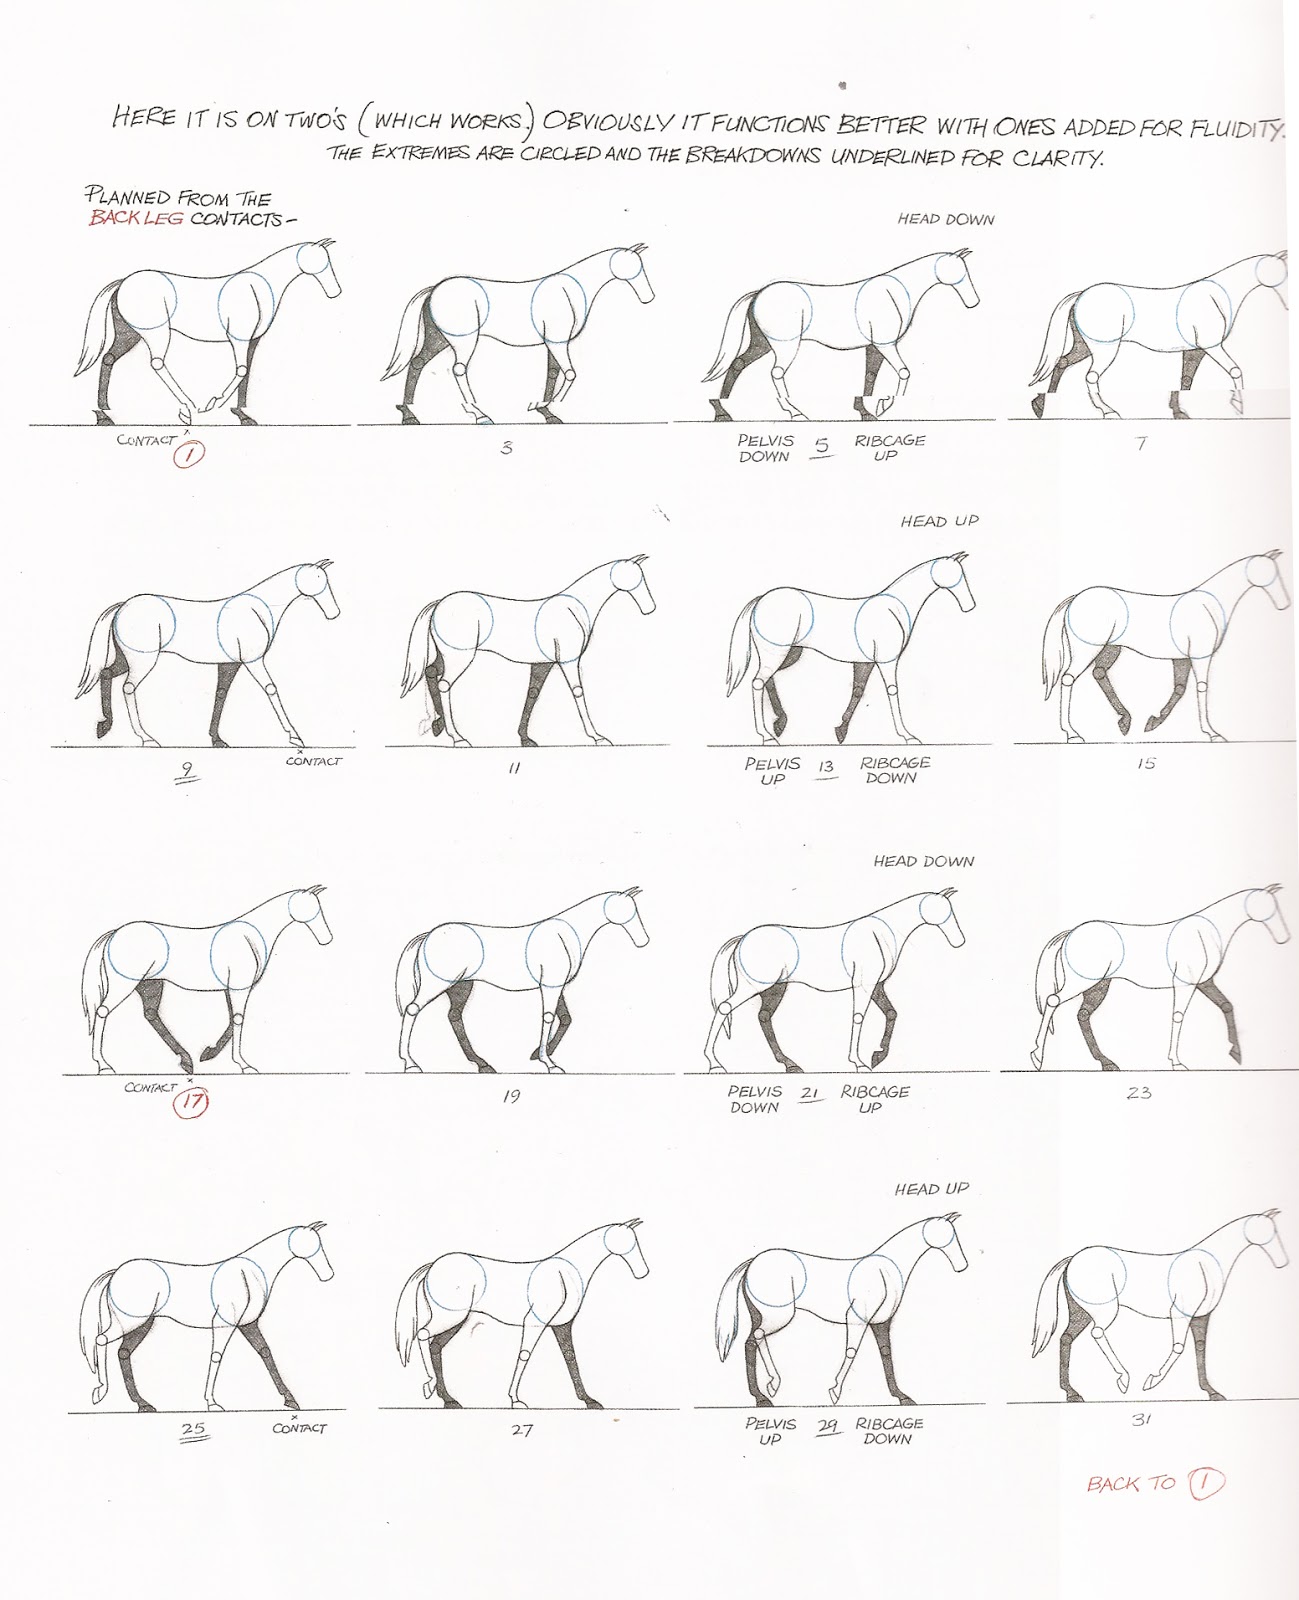 HERE IT IS ON TWO'S (WHICH WORKS.) OBVIOUSLY IT FUNCTIONS BETTER WITH ONES ADDED FOR FLUIDITY.
THE EXTREMES ARE CIRCLED AND THE BREAKDOWNS UNDERLINED FOR CLARITY.
PLANNED FROM THE
BACK LEG CONTACTS-
HEAD DOWN
CONTACT x
1
3
PELVIS DOWN 5 RIBCAGE UP
7
HEAD UP
9
x
CONTACT
11
PELVIS UP 13 RIBCAGE DOWN
15
HEAD DOWN
CONTACT x
17
19
PELVIS DOWN 21 RIBCAGE UP
23
HEAD UP
25
x
CONTACT
27
PELVIS UP 29 RIBCAGE DOWN
31
BACK TO 1